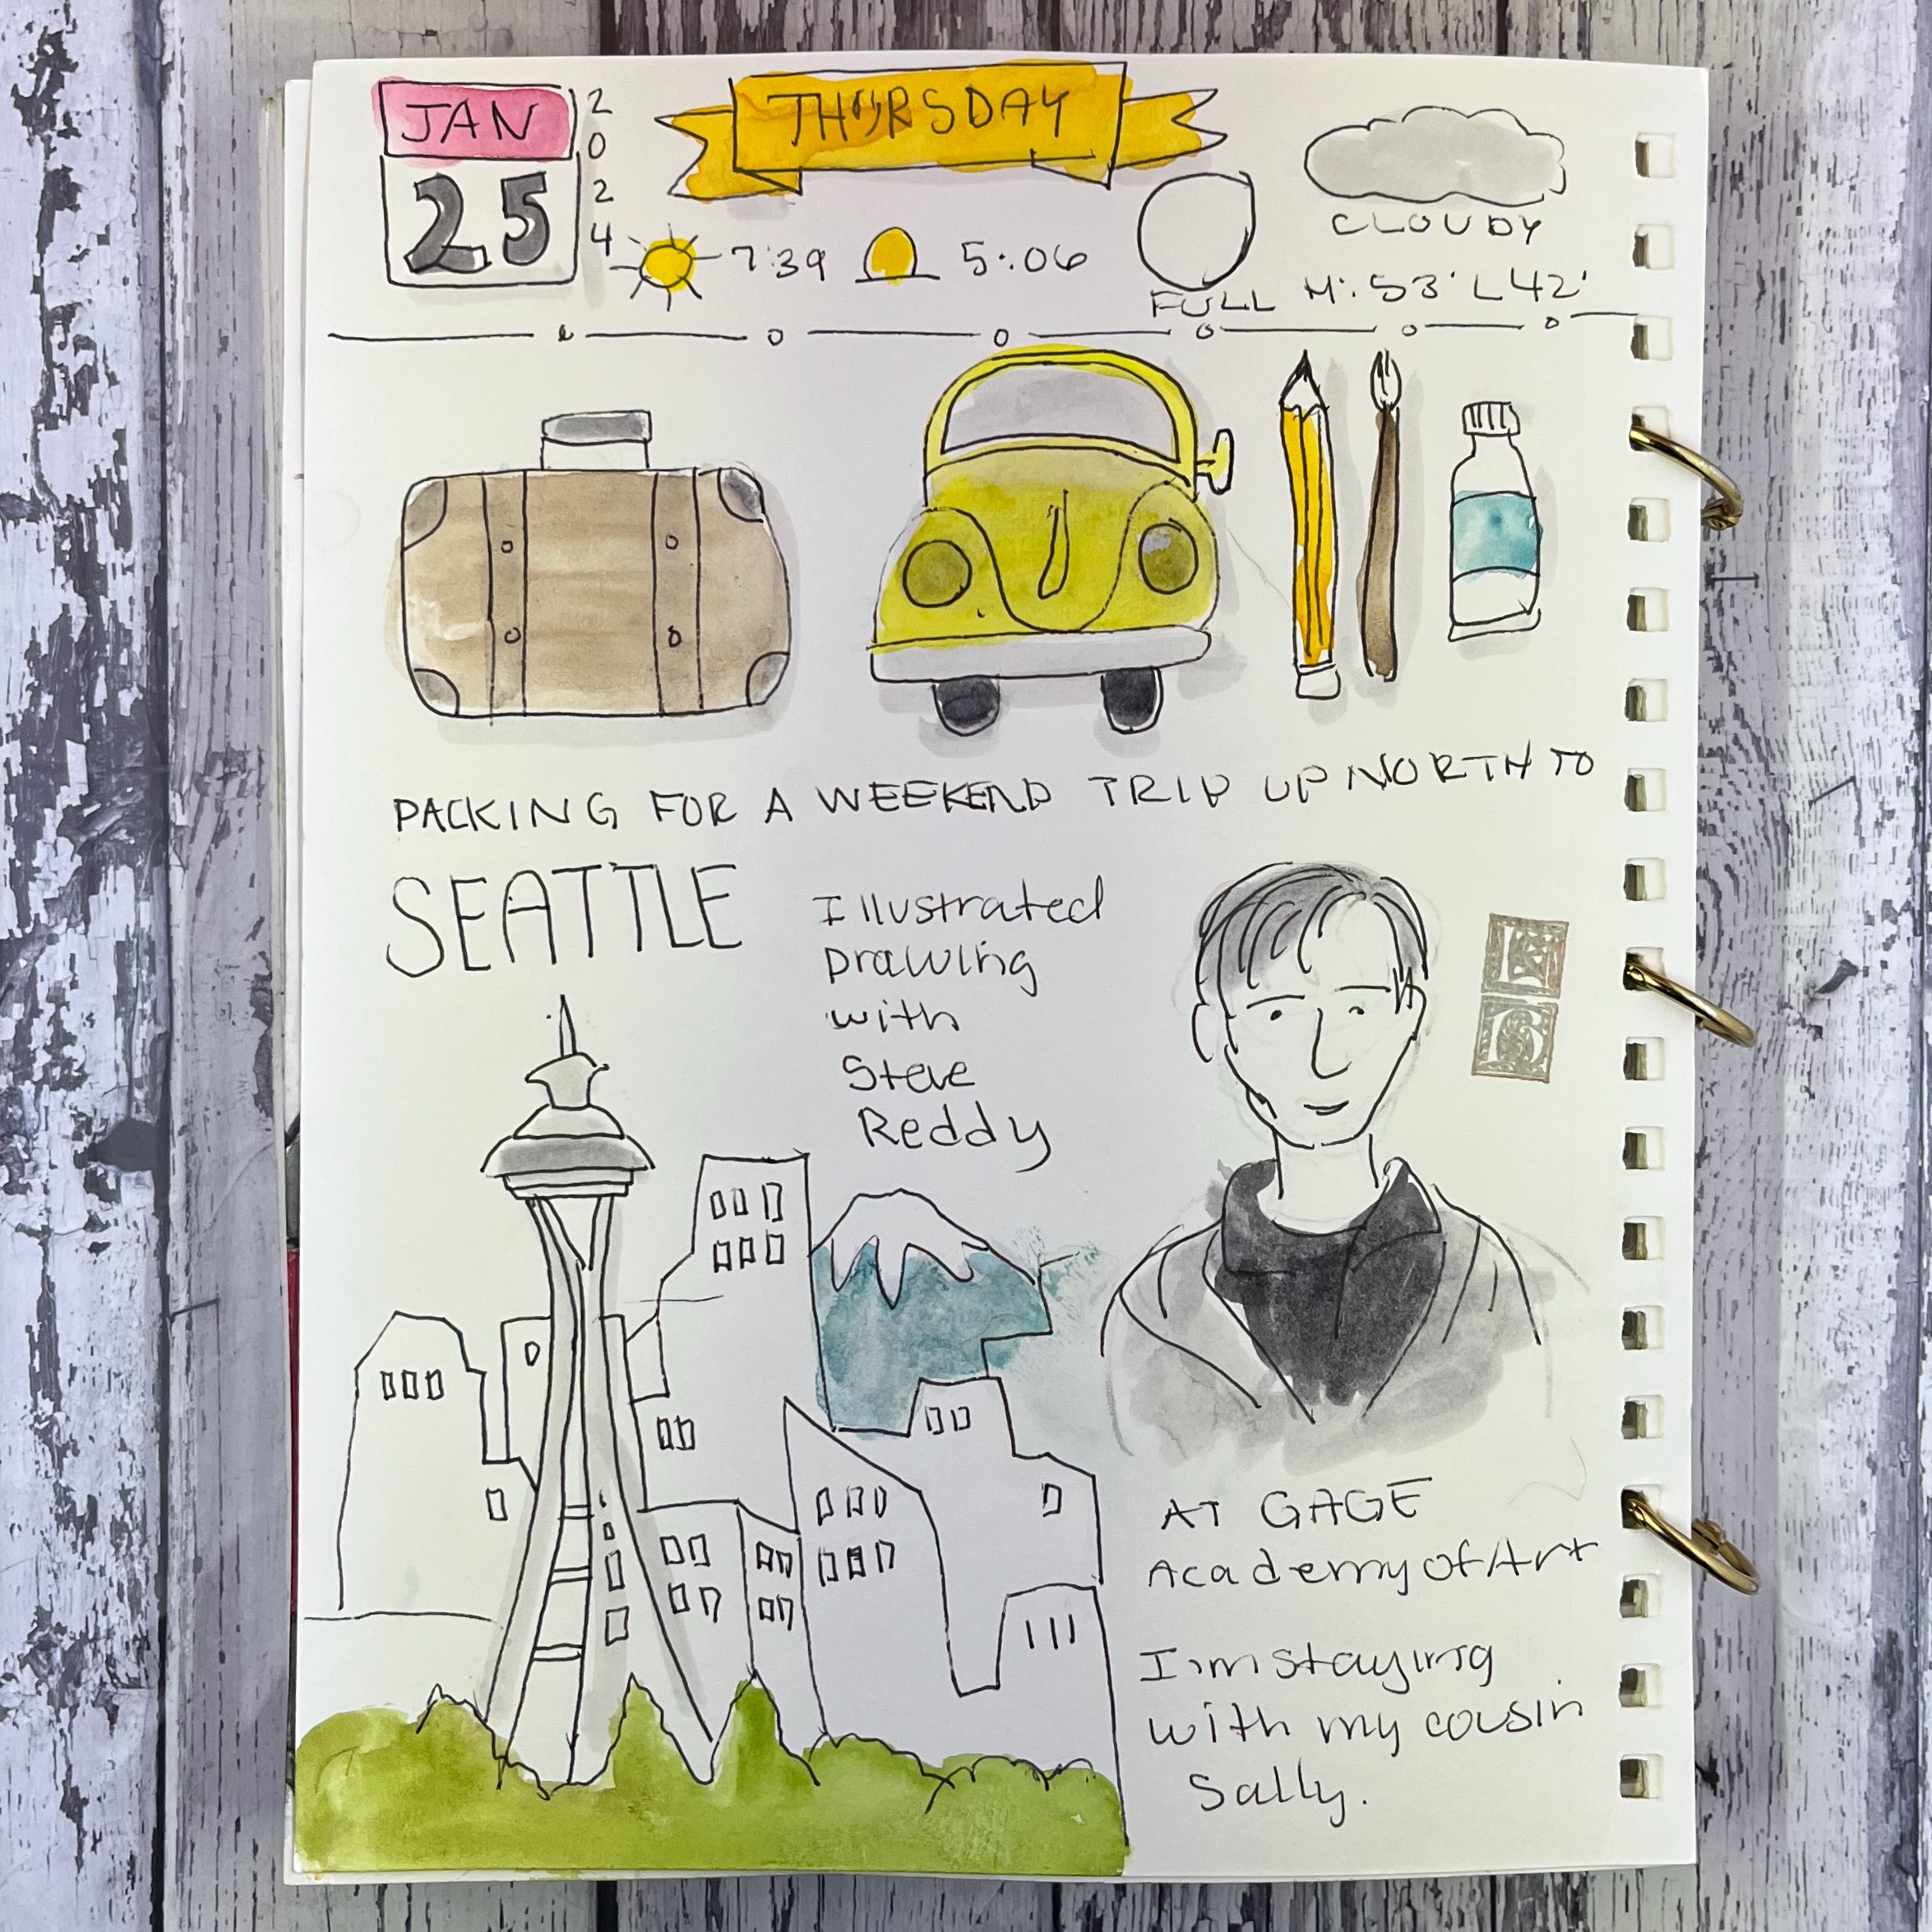 JAN
2024
25
THURSDAY
CLOUDY
7:39
5:06
FULL
H: 53° L 42°
PACKING FOR A WEEKEND TRIP UP NORTH TO
SEATTLE
Illustrated
Drawing
with
Steve
Reddy
AT GAGE
Academy of Art
I'm staying
with my cousin
Sally.